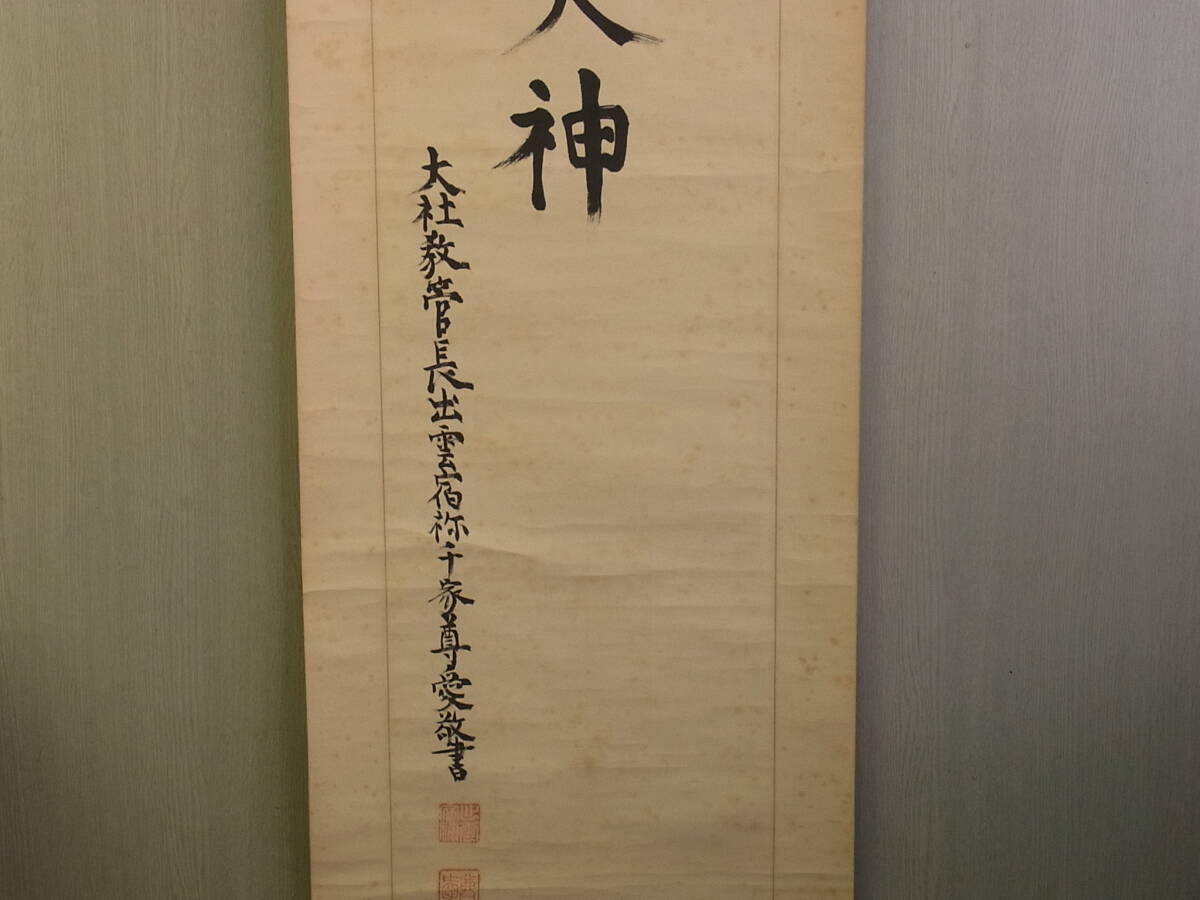 大神
大社教管長出雲宿祢千家尊愛敬書